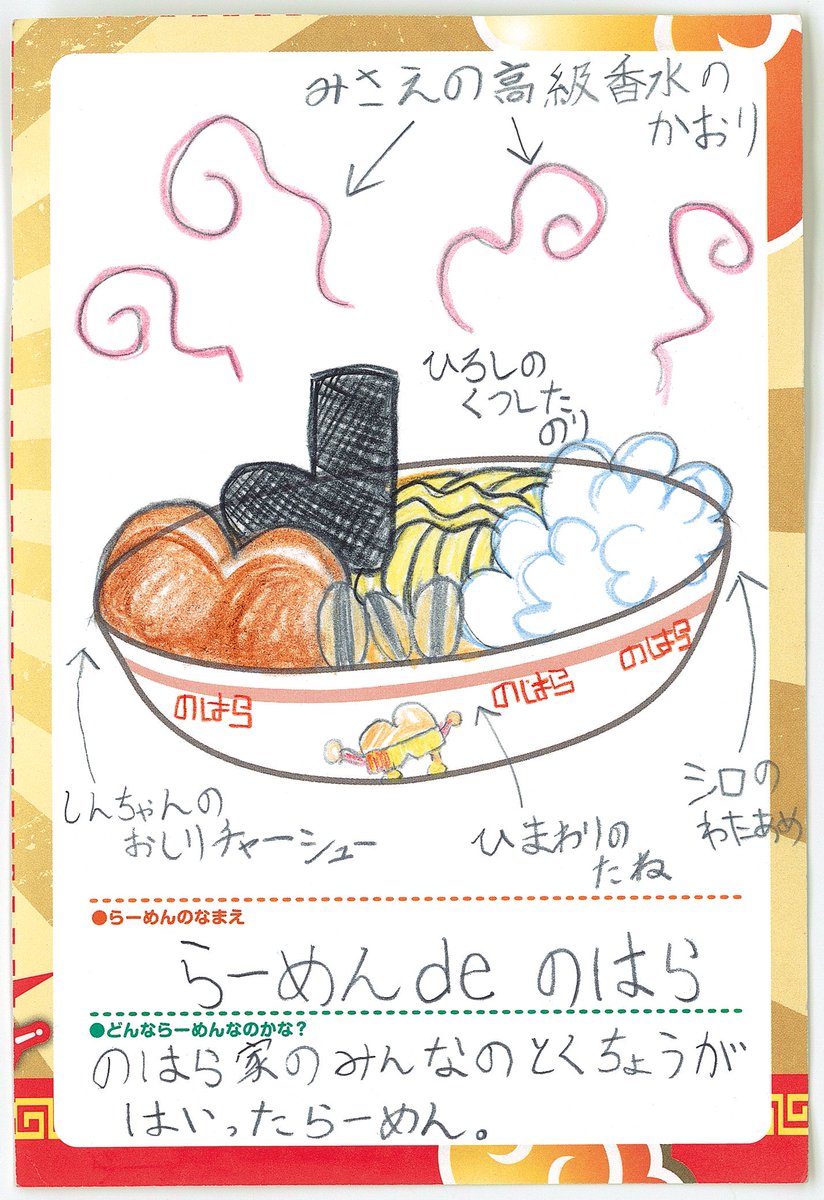 みさえの高級香水の
かおり
ひろしの
くつした
のり
のはら
のはら
のはら
しんちゃんの
おしりチャーシュー
ひまわりの
たね
シロの
わたあめ
●らーめんのなまえ
らーめんde のはら
●どんならーめんなのかな?
のはら家のみんなのとくちょうが
はいったらーめん。